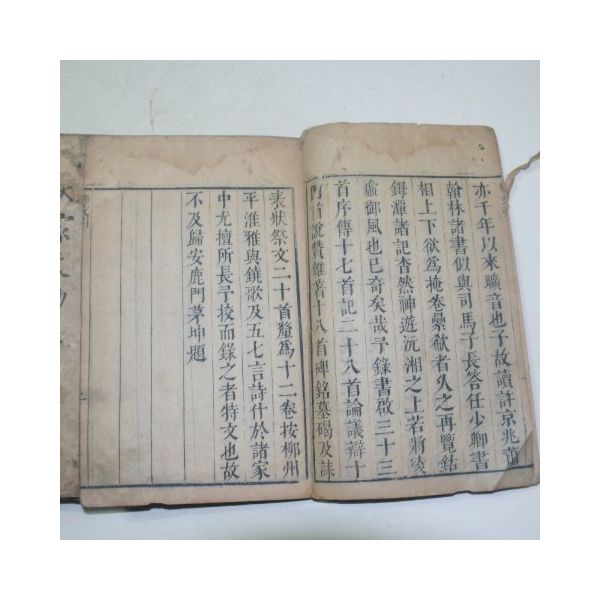 亦千年以來曠音也子故讀許京兆蕭
翰林諸書似與司馬子長答任少卿書
相上下欲為掩卷纍欷者久之再覽鈷
鉧潭諸記杳然神遊沅湘之上若將凌
虛御風也已奇矣哉予錄書啟三十三
首序傳十七首記二十八首論議辯十
四首說贊雜著十八首碑銘墓碣及誄
表狀祭文二十首釐為十二卷按柳州
平淮雅與鐃歌及五七言詩什於諸家
中尤擅所長予挍而錄之者特文也故
不及歸安鹿門茅坤題